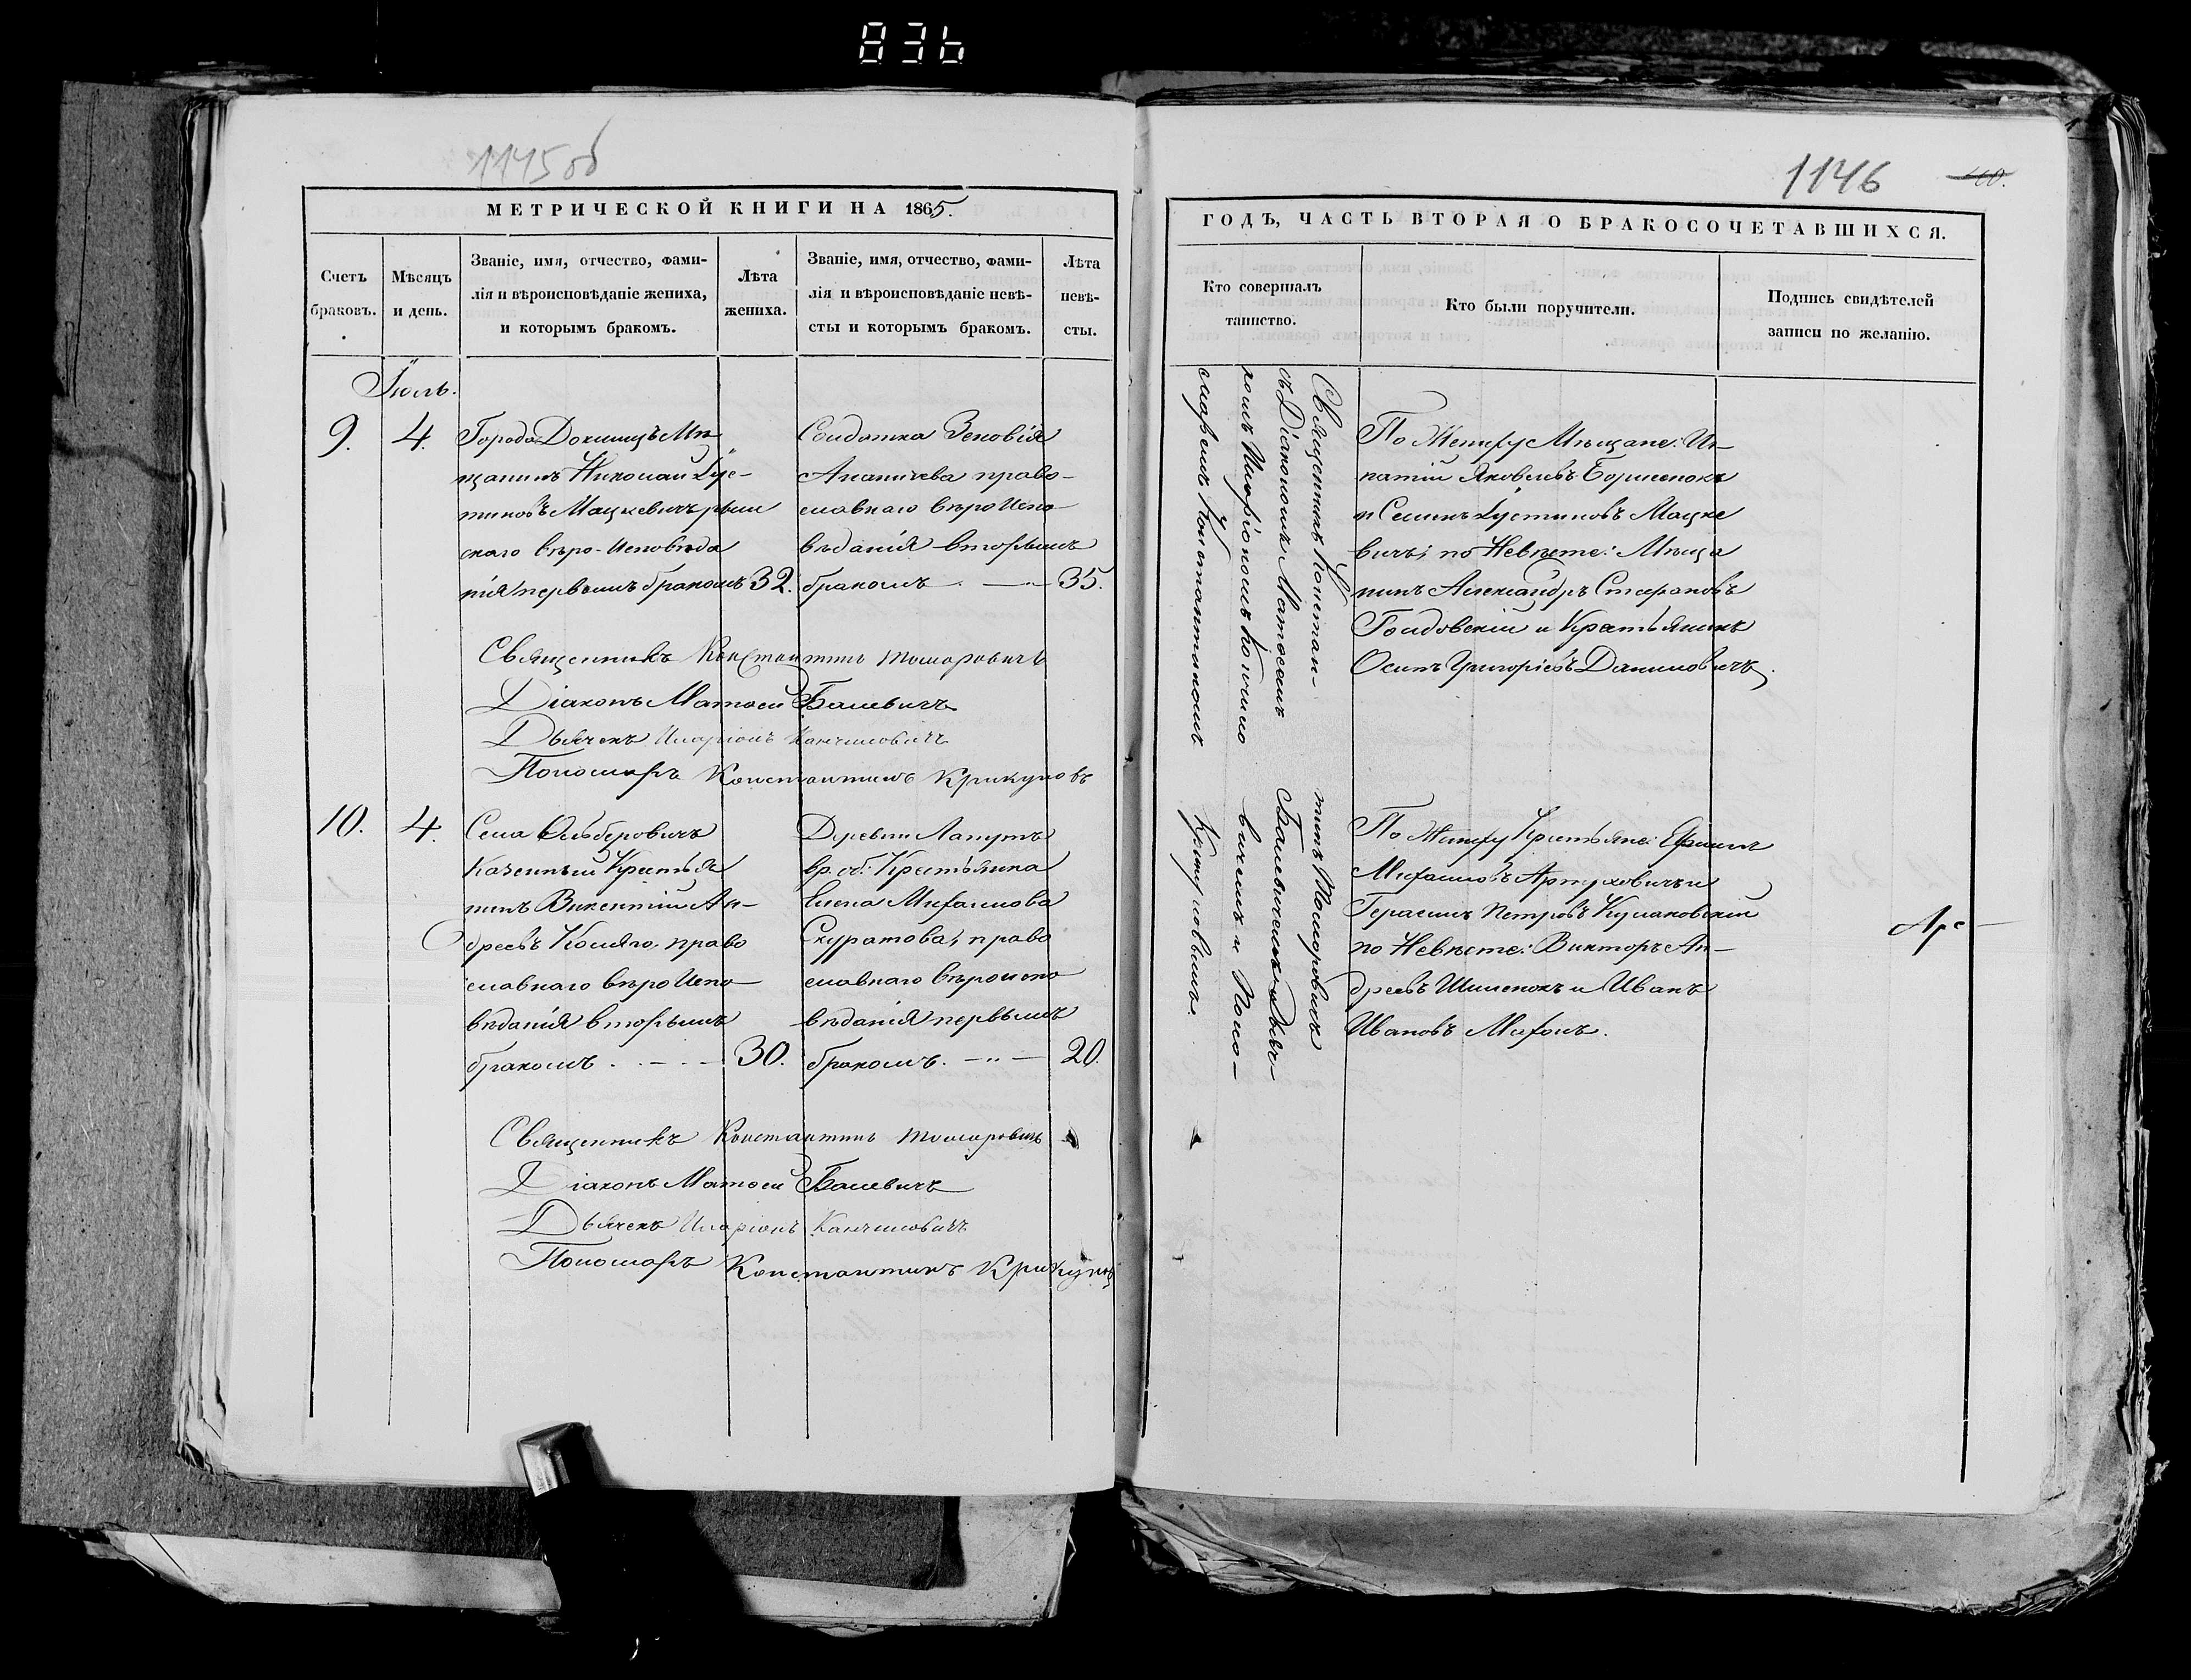 836
1145 об
МЕТРИЧЕСКОЙ КНИГИ НА 1865.
Счетъ
браковъ.
Мѣсяцъ
и день.
Званіе, имя, отчество, фами-
лія и вѣроисповѣданіе жениха,
и которымъ бракомъ.
Лѣта
жениха.
Званіе, имя, отчество, фами-
лія и вѣроисповѣданіе невѣ-
сты и которымъ бракомъ.
Лѣта
невѣ-
сты.
Іюль.
9.
4.
Города Докшицъ Мѣ
щанинъ Николай Іус-
тиновъ Мацкевичъ рим
скаго вѣро-Исповѣда
нія первымъ бракомъ
32.
Солдатка Зеновія
Ананичева право-
славнаго вѣро Испо-
вѣданія вторымъ
бракомъ
35.
Священникъ Константинъ Томаровичъ
Діаконъ Матѳей Балевичъ
Дьячекъ Иларіонъ Канчиловичъ
Пономарь Константинъ Крикуновъ
10.
4.
Села
Казенный Крестья
нинъ Викентій Ан-
дреевъ Коляго, право
славнаго вѣро Испо-
вѣданія вторымъ
бракомъ
30.
Деревни Лапутъ
вр. об. Крестьянка
Елена Михайлова
Скуратова, право
славнаго вѣроиспо
вѣданія первымъ
бракомъ.
20.
Священникъ Константинъ Томаровичъ
Діаконъ Матѳей Балевичъ
Дьячекъ Иларіонъ Канчиловичъ
Пономарь Константинъ Крикуновъ
1146
160.
ГОДЪ, ЧАСТЬ ВТОРАЯ О БРАКОСОЧЕТАВШИХСЯ.
Кто совершалъ
таинство.
Кто были поручители.
Подпись свидѣтелей
записи по желанію.
Священникъ Константинъ Томаровичъ
съ Діакономъ Матѳеемъ Балевичемъ и Дьяч-
комъ Иларіономъ Канчиловичемъ и Поно-
маремъ Константиномъ Крикуновымъ.
По Жениху Мѣщане: Иг-
натій Яковлевъ Борисенокъ
и Семенъ Іустиновъ Мацке
вичъ; по Невѣсте: Мѣща
нинъ Александръ Стефановъ
Голдовскій и Крестьянинъ
Осипъ Григорьевъ Даниловичъ.
По Жениху Крестьяне: Ефимъ
Михайловъ Артуховичъ и
Герасимъ Петровъ Кулаковскій
по Невѣсте: Викторъ Ан-
дреевъ Шиленокъ и Иванъ
Ивановъ Михонъ.